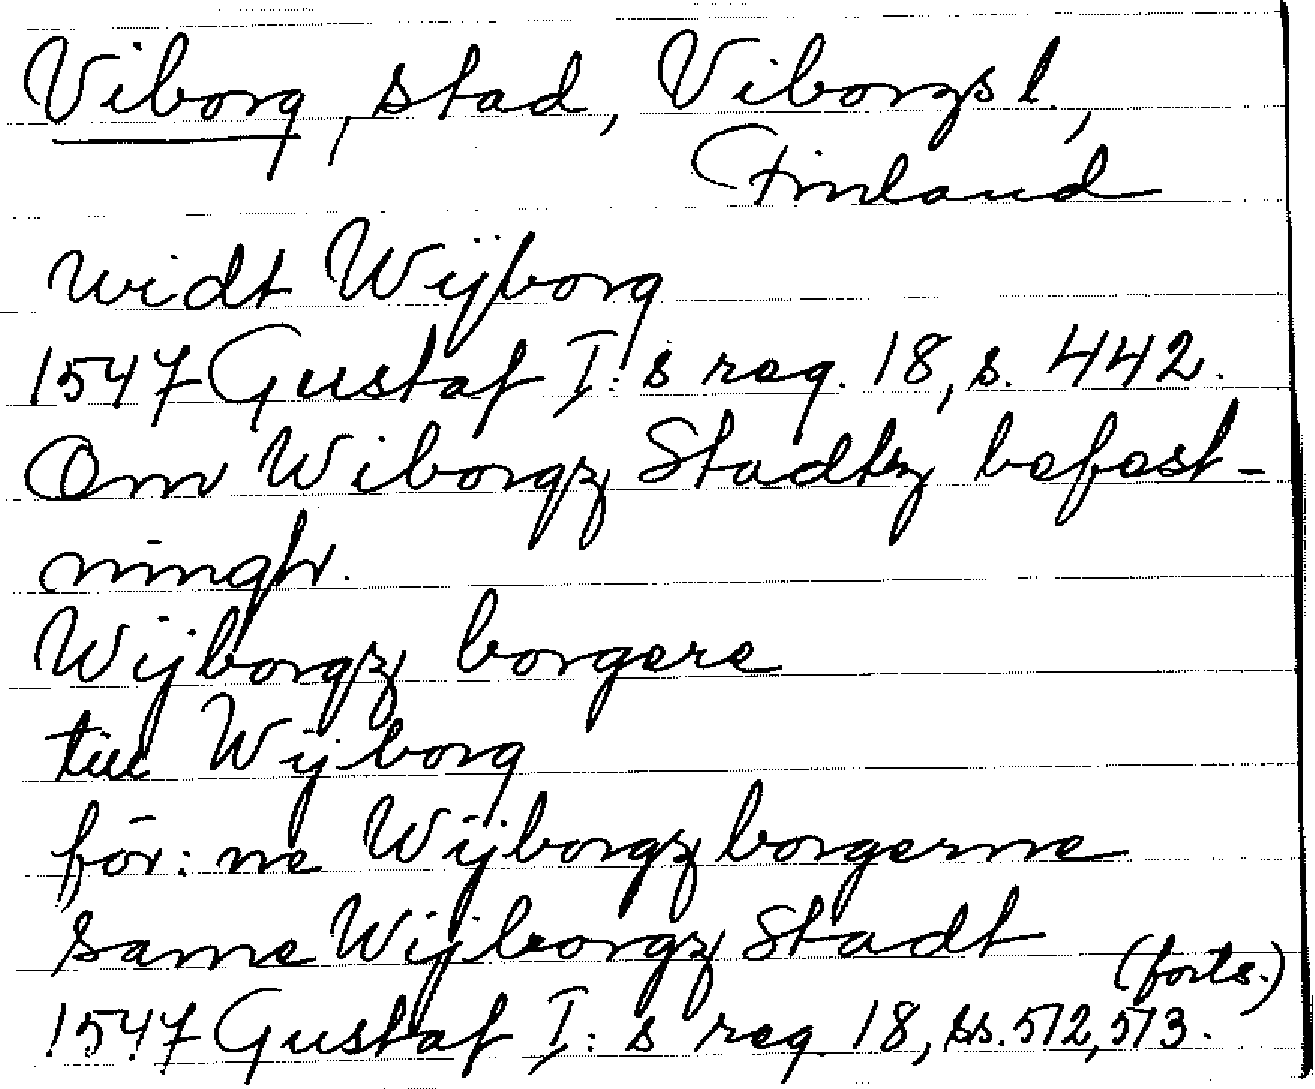 Viborg, stad, Viborgs l.,
Finland
widt Wijborg
1547 Gustaf I:s reg. 18, s. 442.
Om Wiborgz Stadtz befest-
ningh.
Wijborgz borgere
till Wijborg
för:ne Wijborgz borgerne
same Wijborgz Stadt
(forts.)
1547 Gustaf I:s reg. 18, ss. 512, 513.